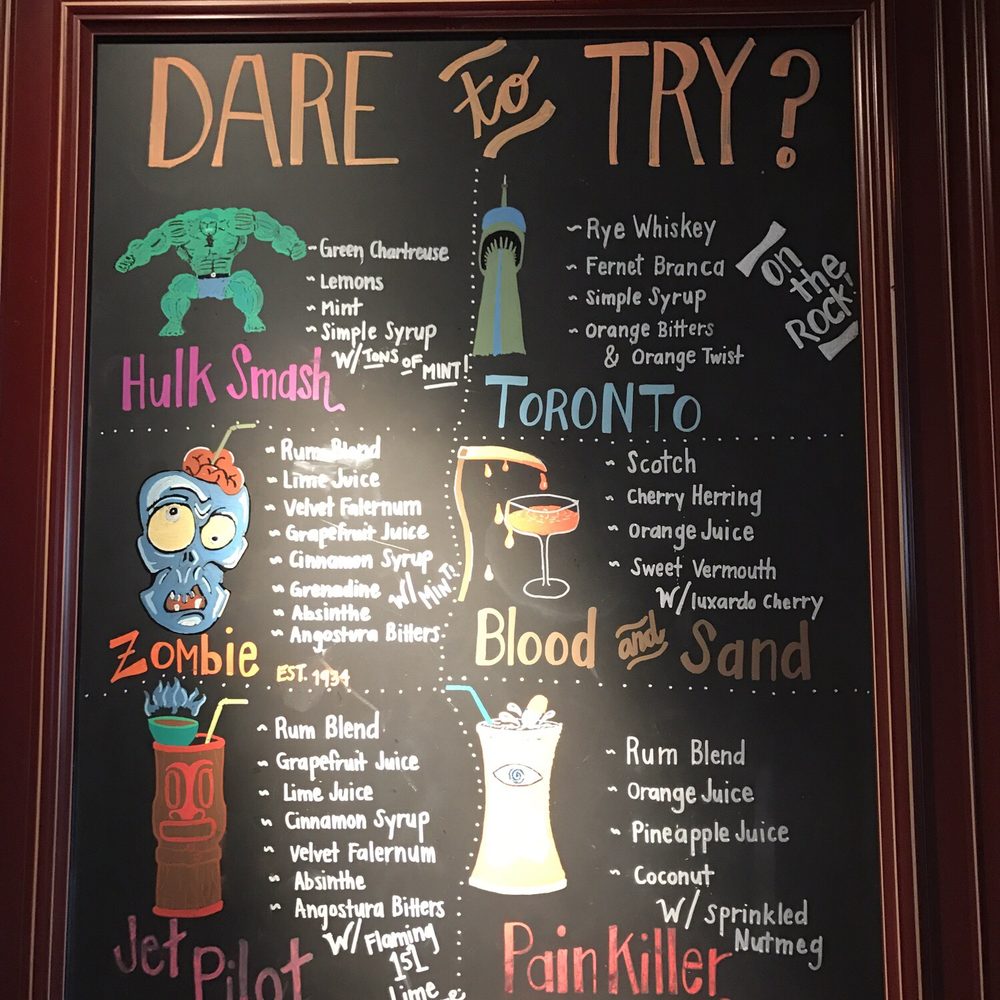 DARE to TRY?
~ Green Chartreuse
~ Lemons
~ Mint
~ Simple Syrup
W/ TONS OF MINT!
Hulk Smash
~ Rye Whiskey
~ Fernet Branca
~ Simple Syrup
~ Orange Bitters
& Orange Twist
on
the
Rock!
TORONTO
~ Rum Blend
~ Lime Juice
~ Velvet Falernum
~ Grapefruit Juice
~ Cinnamon Syrup
~ Grenadine
~ Absinthe
~ Angostura Bitters
W/ MINT!
Zombie EST. 1934
~ Scotch
~ Cherry Herring
~ Orange Juice
~ Sweet Vermouth
W/ luxardo Cherry
Blood and Sand
~ Rum Blend
~ Grapefruit Juice
~ Lime Juice
~ Cinnamon Syrup
~ Velvet Falernum
~ Absinthe
~ Angostura Bitters
W/ Flaming
151
Lime
Jet Pilot
~ Rum Blend
~ Orange Juice
~ Pineapple Juice
~ Coconut
W/ Sprinkled
Nutmeg
Pain Killer